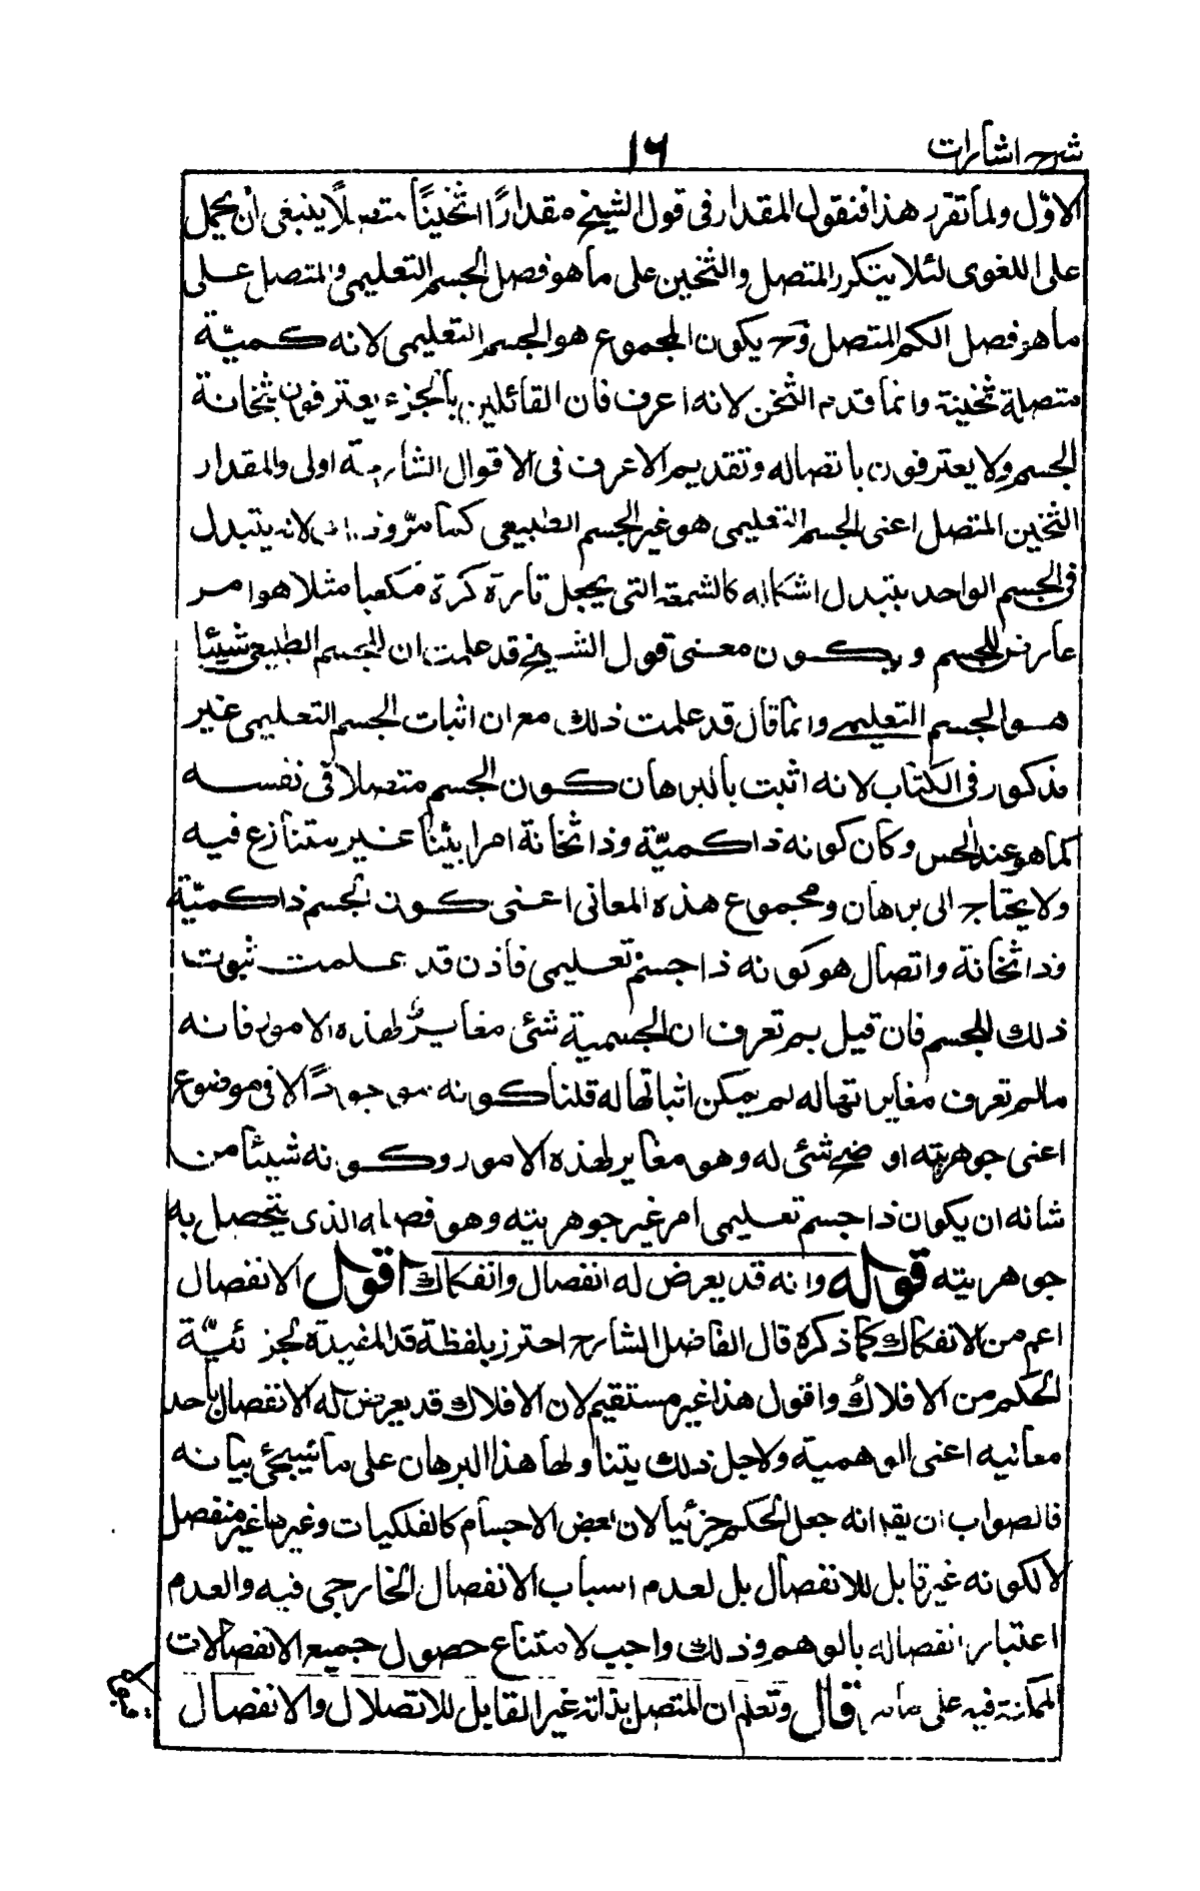 شرح اشارات
١٦
الاوّل ولما تقرر هذا فنقول المقدار فى قول الشيخ مقدارًا ثخينًا متصلًا ينبغى ان يحمل
على اللغوى لئلا يتكرر المتصل والثخين على ما هو فصل الجسم التعليمى والمتصل على
ما هو فصل الكم المتصل وح يكون المجموع هو الجسم التعليمى لانه كميّة
متصلة ثخينة وانما قدم الثخن لانه اعرف فان القائلين بالجزء يعترفون بثخانة
الجسم ولا يعترفون باتصاله وتقديم الاعرف فى الاقوال الشارحة اولى والمقدار
الثخين المتصل اعنى الجسم التعليمى هو غير الجسم الطبيعى كما مرّ وذ لانه يتبدل
فى الجسم الواحد بتبدل اشكاله كالشمعة التى يجعل تارة كرة مكعبا مثلا هو امر
عارض للجسم ويكون معنى قول الشيخ قد علمت ان للجسم الطبيعى شيئا
هو الجسم التعليمى وانما قال قد علمت ذلك مع ان اثبات الجسم التعليمى غير
مذكور فى الكتاب لانه اثبت بالبرهان كون الجسم متصلا فى نفسه
كما هو عند الحس وكان كونه ذا كميّة وذا ثخانة امرا بيّنا غير متنازع فيه
ولا يحتاج الى برهان ومجموع هذه المعانى اعنى كون الجسم ذا كميّة
وذا ثخانة واتصال هو كونه ذا جسم تعليمى فاذن قد علمت ثبوت
ذلك للجسم فان قيل بم تعرف ان الجسمية شئ مغاير لهذه الامور فانه
مالم تعرف مغايرتها له لم يمكن اثباتها له قلنا كونه موجودًا لا فى موضوع
اعنى جوهريته اوضح شئ له وهو مغاير لهذه الامور وكونه شيئا من
شانه ان يكون ذا جسم تعليمى امر غير جوهريته وهو فصله الذى يتحصل به
جوهريته قوله وانه قد يعرض له انفصال وانفكاك اقول الانفصال
اعم من الانفكاك كما ذكره قال الفاضل الشارح احترز بلفظة قد المفيدة لجزئيّة
الحكم من الافلاك واقول هذا غير مستقيم لان الافلاك قد يعرض له الانفصال باحد
معانيه اعنى الوهمية ولاجل ذلك يتناولها هذا البرهان على ما سيجئ بيانه
فالصواب ان يقه انه جعل الحكم جزئيا لان بعض الاجسام كالفلكيات وغيرها غير منفصل
لا لكونه غير قابل للانفصال بل لعدم اسباب الانفصال الخارجى فيه والعدم
اعتبار انفصاله بالوهم وذلك واجب لامتناع حصول جميع الانفصالات
الممكنة فيه على قال وتعلم ان المتصل بذاته غير القابل للاتصلال والانفصال